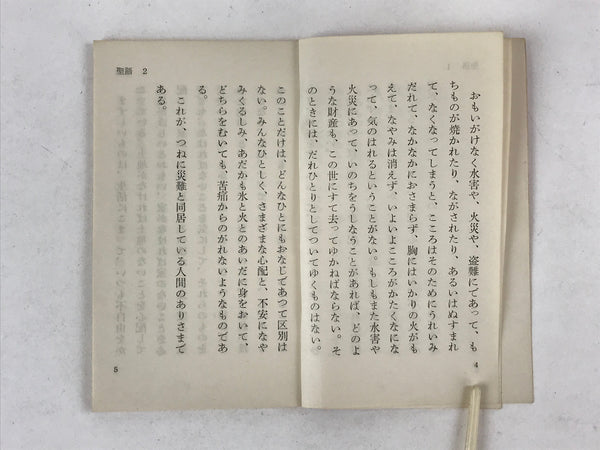 おもいがけなく水害や、火災や、盗難にであって、も
ちものが焼かれたり、ながされたり、あるいはぬすまれ
て、なくなってしまうと、こころはそのためにうれいみ
だれて、なかなかにおさまらず、胸にはいかりの火がも
えて、なやみは消えず、いよいよこころがかたくなにな
って、気のはれるということがない。もしもまた水害や
火災にあって、いのちをうしなうことがあれば、どのよ
うな財産も、この世にすて去ってゆかねばならない。そ
のときには、だれひとりとしてついてゆくものはない。
4
聖語 2
このことだけは、どんなひとにもおなじであつて区別は
ない。みんなひとしく、さまざまな心配と、不安になや
みくるしみ、あだかも氷と火とのあいだに身をおいて、
どちらをむいても、苦痛からのがれないようなものであ
る。
これが、つねに災難と同居している人間のありさまで
ある。
5